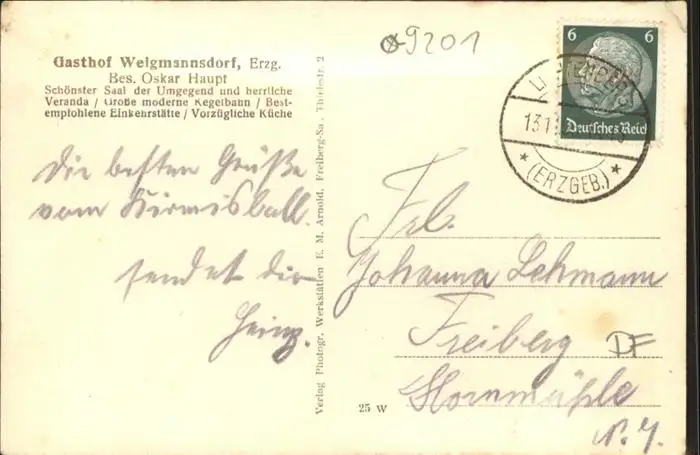 Gasthof Weigmannsdorf, Erzg.
Bes. Oskar Haupt
Schönster Saal der Umgegend und herrliche
Veranda / Große moderne Kegelbahn / Best-
empfohlene Einkehrstätte / Vorzügliche Küche
Die besten Grüße
vom Kirmisball.
sendet dir
Heinz.
Verlag Photogr. Werkstätten E. M. Arnold, Freiberg-Sa., Thielestr. 2
25 W
9201
6 6
Deutsches Reich
(ERZGEB.)
Frl.
Johanna Lehmann
Freiberg
DF
Hornmühle